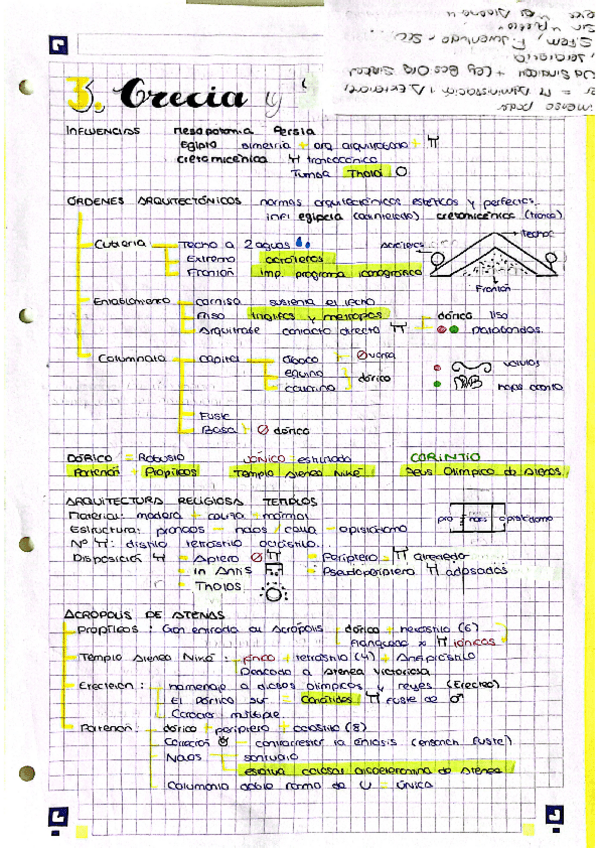 3. Grecia y
INFLUENCIAS mesopotamia Persia
Egipto simetría + org arquitrabada +
cretomicénica troncocónica
Tumba Tholo
ÓRDENES ARQUITECTÓNICOS normas arquitectónicos estéticos y perfectas.
infl egipcia (acanalado) cretomicénica (tronco)
Cubierta Techo a 2 aguas acróteras techos
Extremo acróteras
Frontón imp. programa iconográfico Frontón
Entablamento cornisa sustenta el techo
Friso triglifos y metropas dórico liso
Arquitrabe contacto directo 3 bandas
Columnata capitel ábaco
equino dórico volutas
collarino hojas acanto
Fuste
Basa dórico
DÓRICO = Robusto JÓNICO = estriado CORINTIO
Partenón + Propileos Templo Atenea Niké Zeus Olímpico de Atenas
ARQUITECTURA RELIGIOSA TEMPLOS
Material: madera + caliza + mármol
Estructura: pronaos - naos / cella - opistódomo pro naos opistodomo
Nº: dístilo tetrástilo octástilo...
Disposición = Áptero = Períptero = alrededor
= In Antis = Pseudoperíptero adosadas
= Tholos
ACRÓPOLIS DE ATENAS
Propileos : Gran entrada au Acrópolis dórico + hexástilo (6)
flanqueado x jónicas
Templo Atenea Niké : jónico + tetrástilo (4) + Anfipróstilo
Dedicado a Atenea Victoriosa
Erecteion : homenaje a dioses olímpicos y reyes (Erecteo)
El pórtico sur = Cariátides fuste de
Carácter múltiple
Partenón : dórico + períptero + octástilo (8)
Corrección contrarrestar la éntasis (ensanch. fuste)
Naos santuario
estatua colosal crisoelefantina de Atenea
Columnata doble forma de U = única